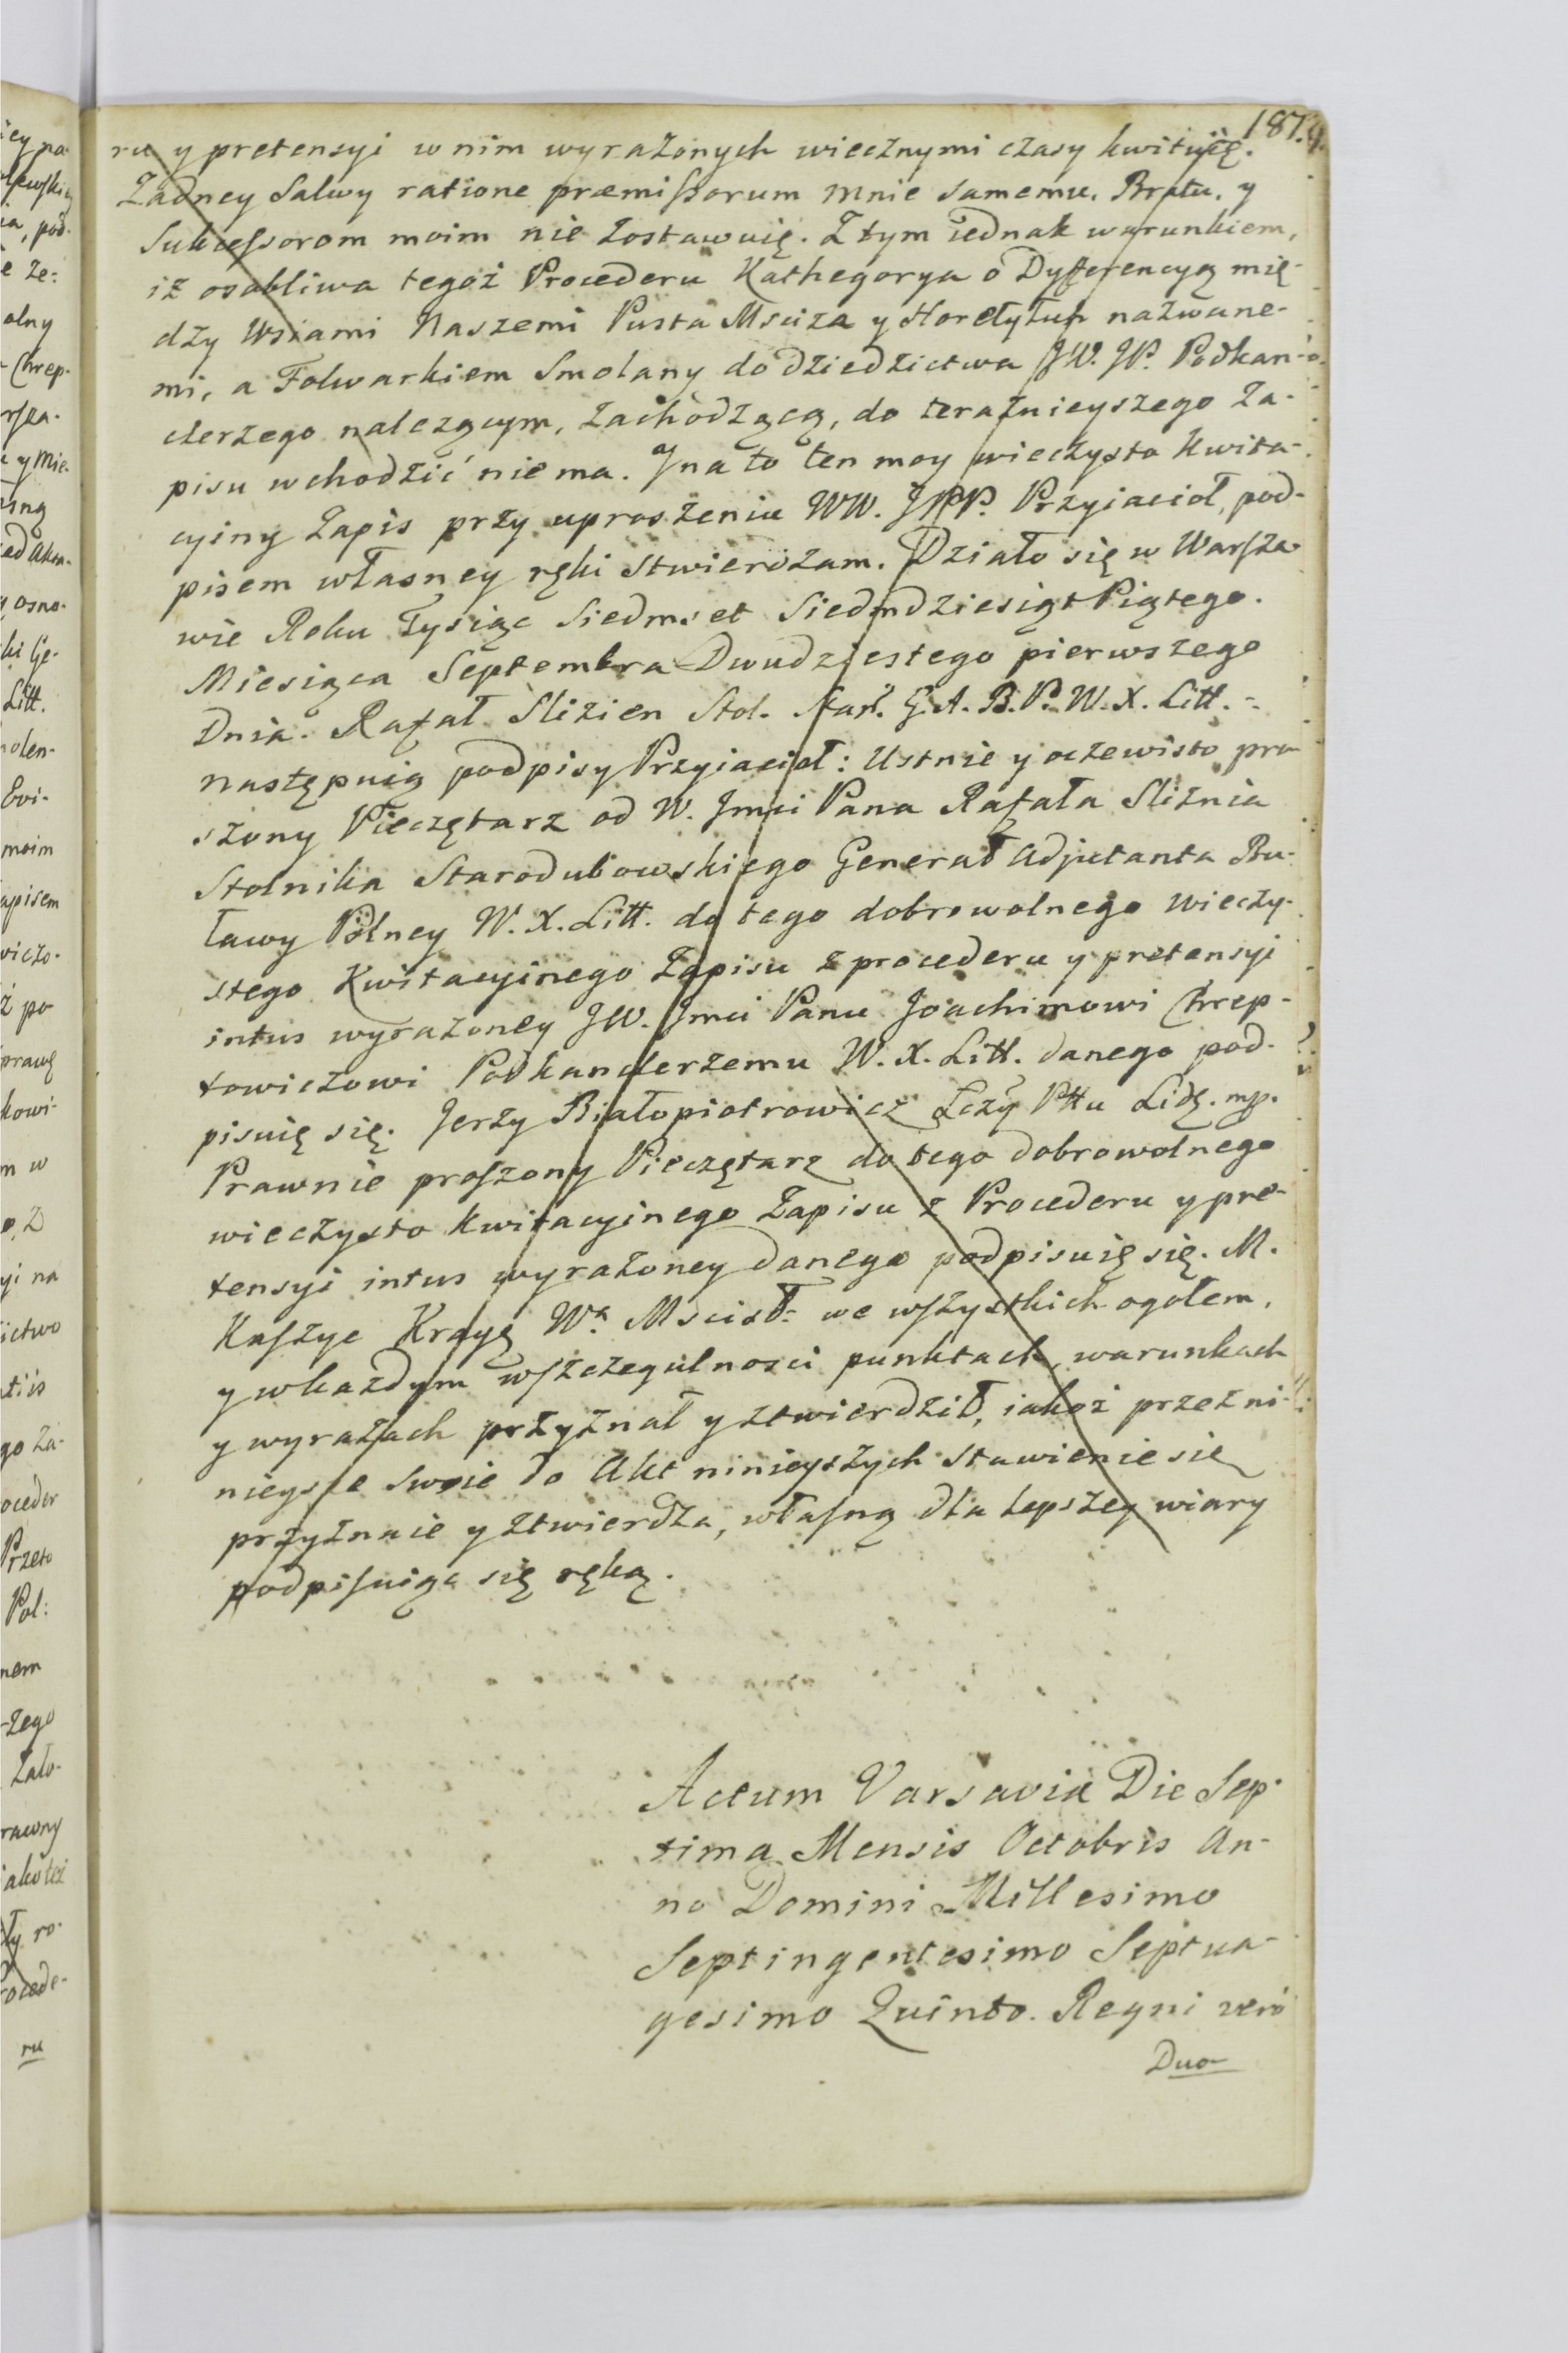 187.
ru y pretensyi w nim wyrażonych wiecznymi czasy kwituię.
Żadney Salwy ratione præmissorum mnie samemu, Bratu, y
Sukcessorom moim nie zostawuię. Z tym iednak warunkiem,
iż osobliwa tegoż Procederu Kathegorya o Dyfferencyą mię-
dzy Wsiami Naszemi Pusta Msciza y Horełytup nazwane-
mi, a Folwarkiem Smolany do dziedzictwa JW. JP. Podkan-
clerzego należącym, zachodzącą, do teraznieyszego Za-
pisu wchodzić nie ma. J na to ten moy wieczysto Kwita-
cyiny Zapis przy uproszeniu WW. JPP. Przyiacioł, pod-
pisem własney ręki stwierdzam. Działo się w Warsza-
wie Roku Tysiąc Siedmset Siedmdziesiąt Piątego.
Miesiąca Septembra Dwudziestego pierwszego
Dnia. Rafał Slizien Stol. Star. G. A. B. P. W. X. Litt. =
następuią podpisy Przyiacioł: Ustnie y oczewisto pro-
szony Pieczętarz od W. Jmci Pana Rafała Sliznia
Stolnika Starodubowskiego Generał Adjutanta Bu-
ławy Polney W. X. Litt. do tego dobrowolnego wieczy-
stego Kwitacyinego Zapisu z procederu y pretensyi
intus wyrażoney JW. Jmci Panu Joachimowi Chrep-
towiczowi Podkanclerzemu W. X. Litt. danego pod-
pisuię się. Jerzy Białopiotrowicz Pttu Lidz. mp.
Prawnie proszony Pieczętarz do tego dobrowolnego
wieczysto Kwitacyinego Zapisu z Procederu y pre-
tensyi intus wyrażoney danego podpisuię się. M.
Kaszyc Kraył Wa. Mscisł: we wszystkich ogołem,
y w każdym wszczegulnosci punktach, warunkach
y wyrazach przyznał y ztwierdził, iakoż przez ni-
nieysze swoie do Akt ninieyszych stawienie się
przyznaie y ztwierdza, własną dla lepszey wiary
podpisuiąc się ręką.
Actum Varsaviæ Die Sep-
tima Mensis Octobris An-
no Domini Millesimo
Septingentesimo Septua-
gesimo Quinto. Regni verò
Duo-